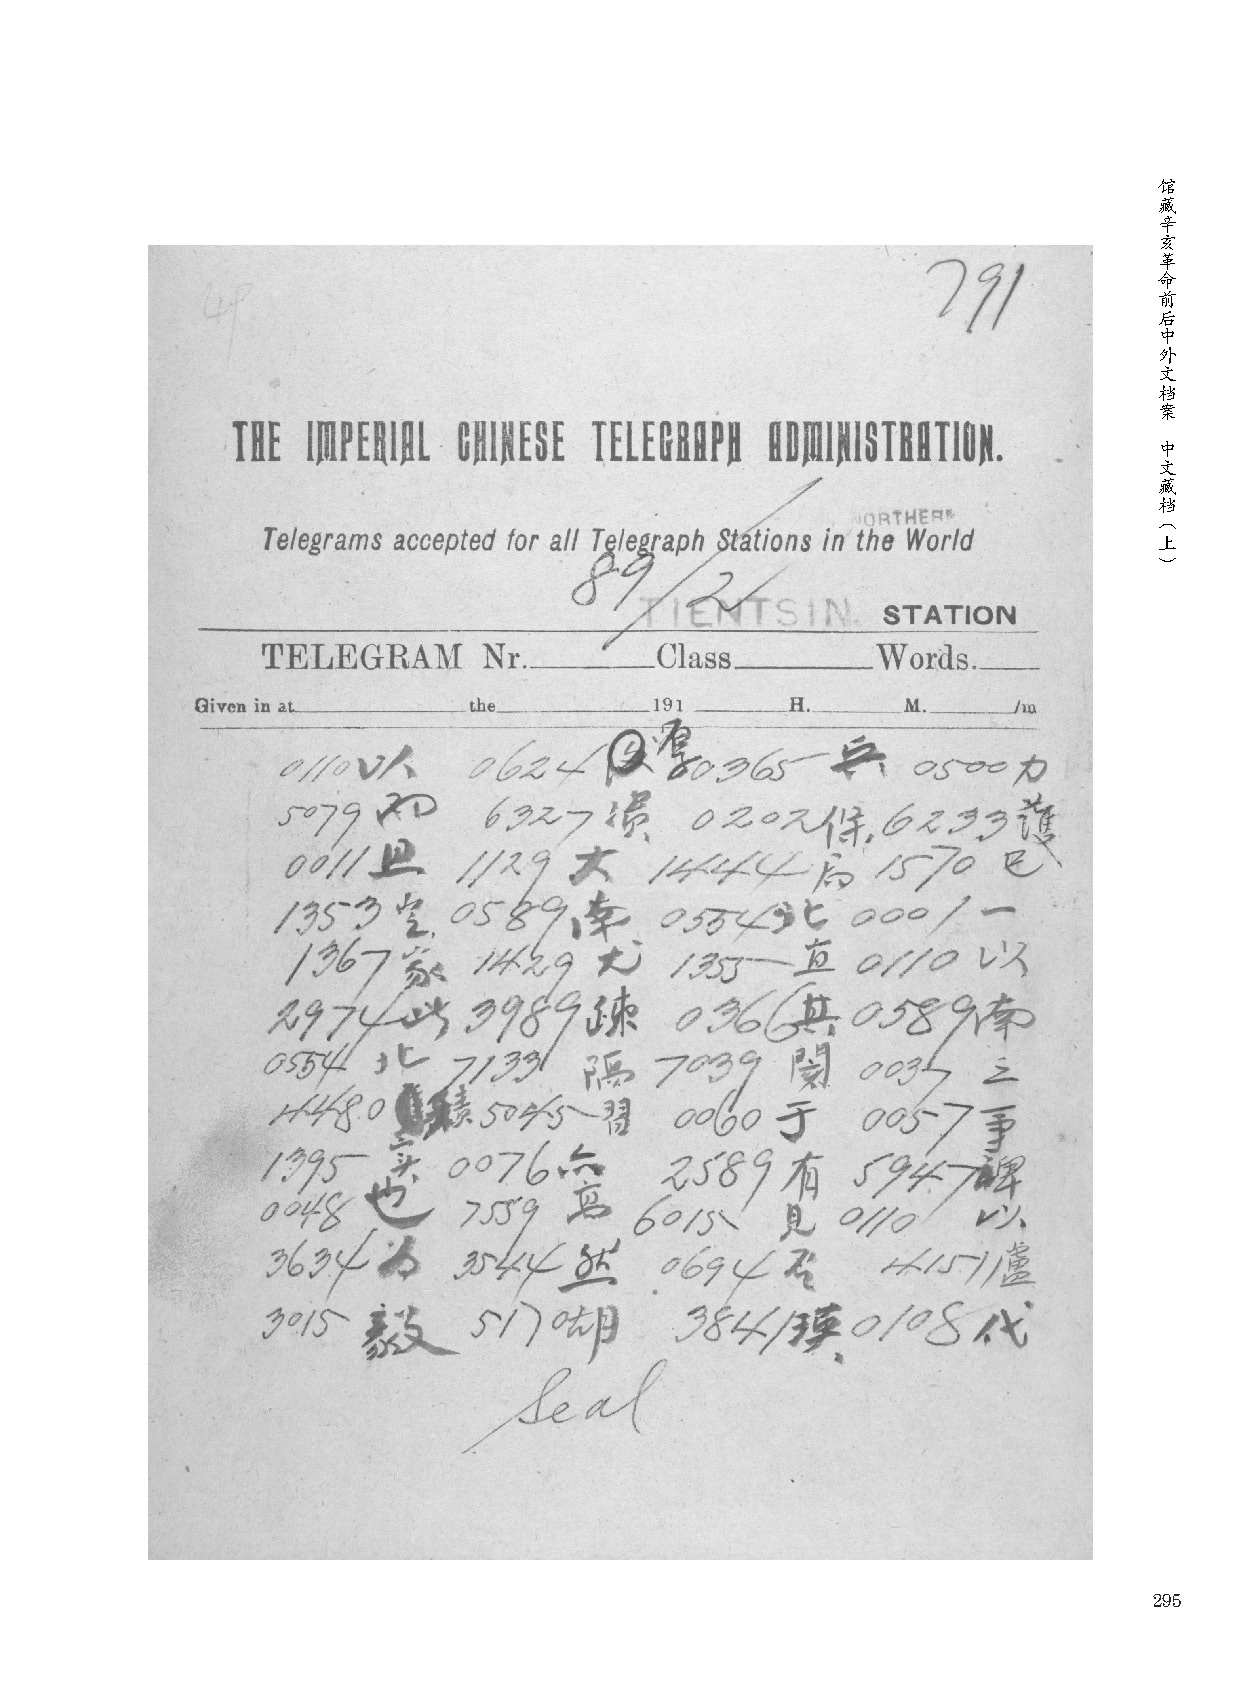 馆藏辛亥革命前后中外文档案 中文藏档（上）
791
THE IMPERIAL CHINESE TELEGRAPH ADMINISTRATION.
NORTHERN
Telegrams accepted for all Telegraph Stations in the World
89/2
TIENTSIN. STATION
TELEGRAM Nr. Class Words.
Given in at the 191 H. M. /m
0110以 0624 厚 0365兵 0500力
5079而 6327損 0202保 6233護
0011且 1129大 1444局 1570已
1353定 0589南 0554北 0001一
1367家 1429尤 1355宜 0110以
2974此 3989疎 0366其 0589南
0554北 7133隔 7039閡 0037之
4480積 5045習 0060于 0057事
1395实 0076亦 2589有 5947裨
0048也 7559寫 6015見 0110以
3634为 3544然 0694否 4151盧
3015毅 5170胡 3841瑛 0108代
Seal
295